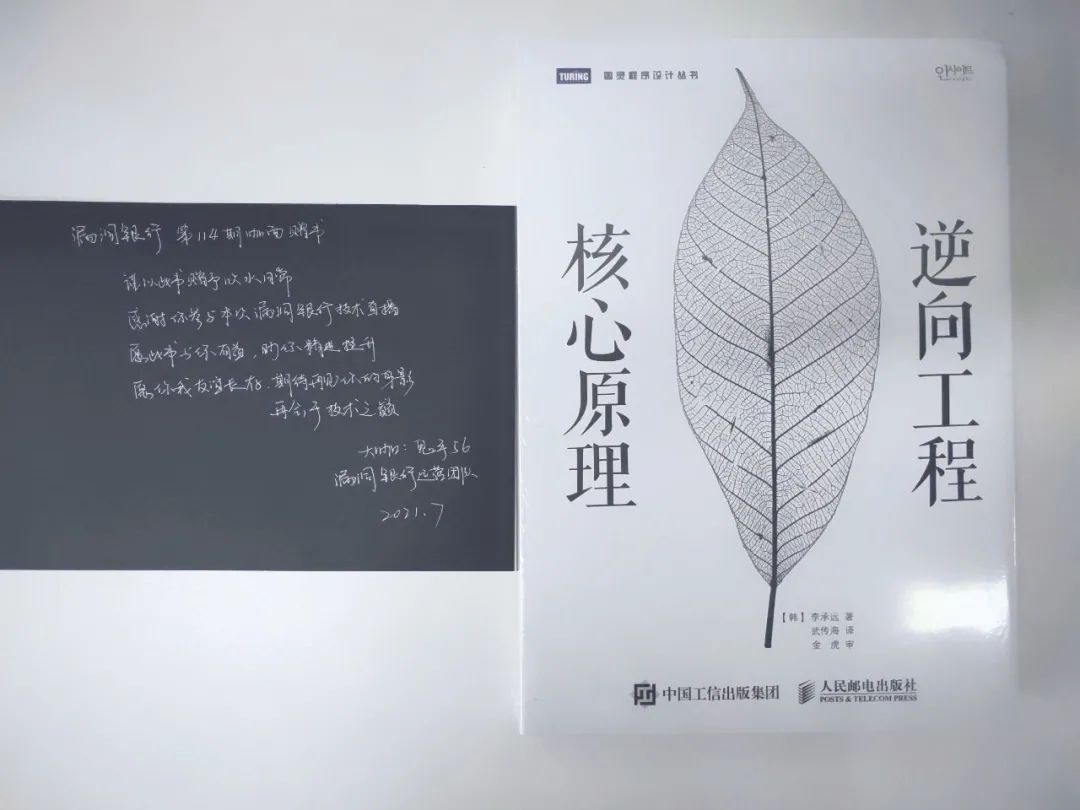 漏洞银行 第114期咖面赠书
谨以此书赠予吹水日常
感谢你参与本次漏洞银行技术直播
愿此书与你有益,助你精进提升
愿你我友谊长存,期待再见你的身影
再会于技术之巅
大咖:
漏洞银行运营团队
2021.7
TURING 图灵程序设计丛书
인사이트
逆向工程
核心原理
【韩】李承远 著
武传海 译
金 虎 审
中国工信出版集团
人民邮电出版社
POSTS & TELECOM PRESS